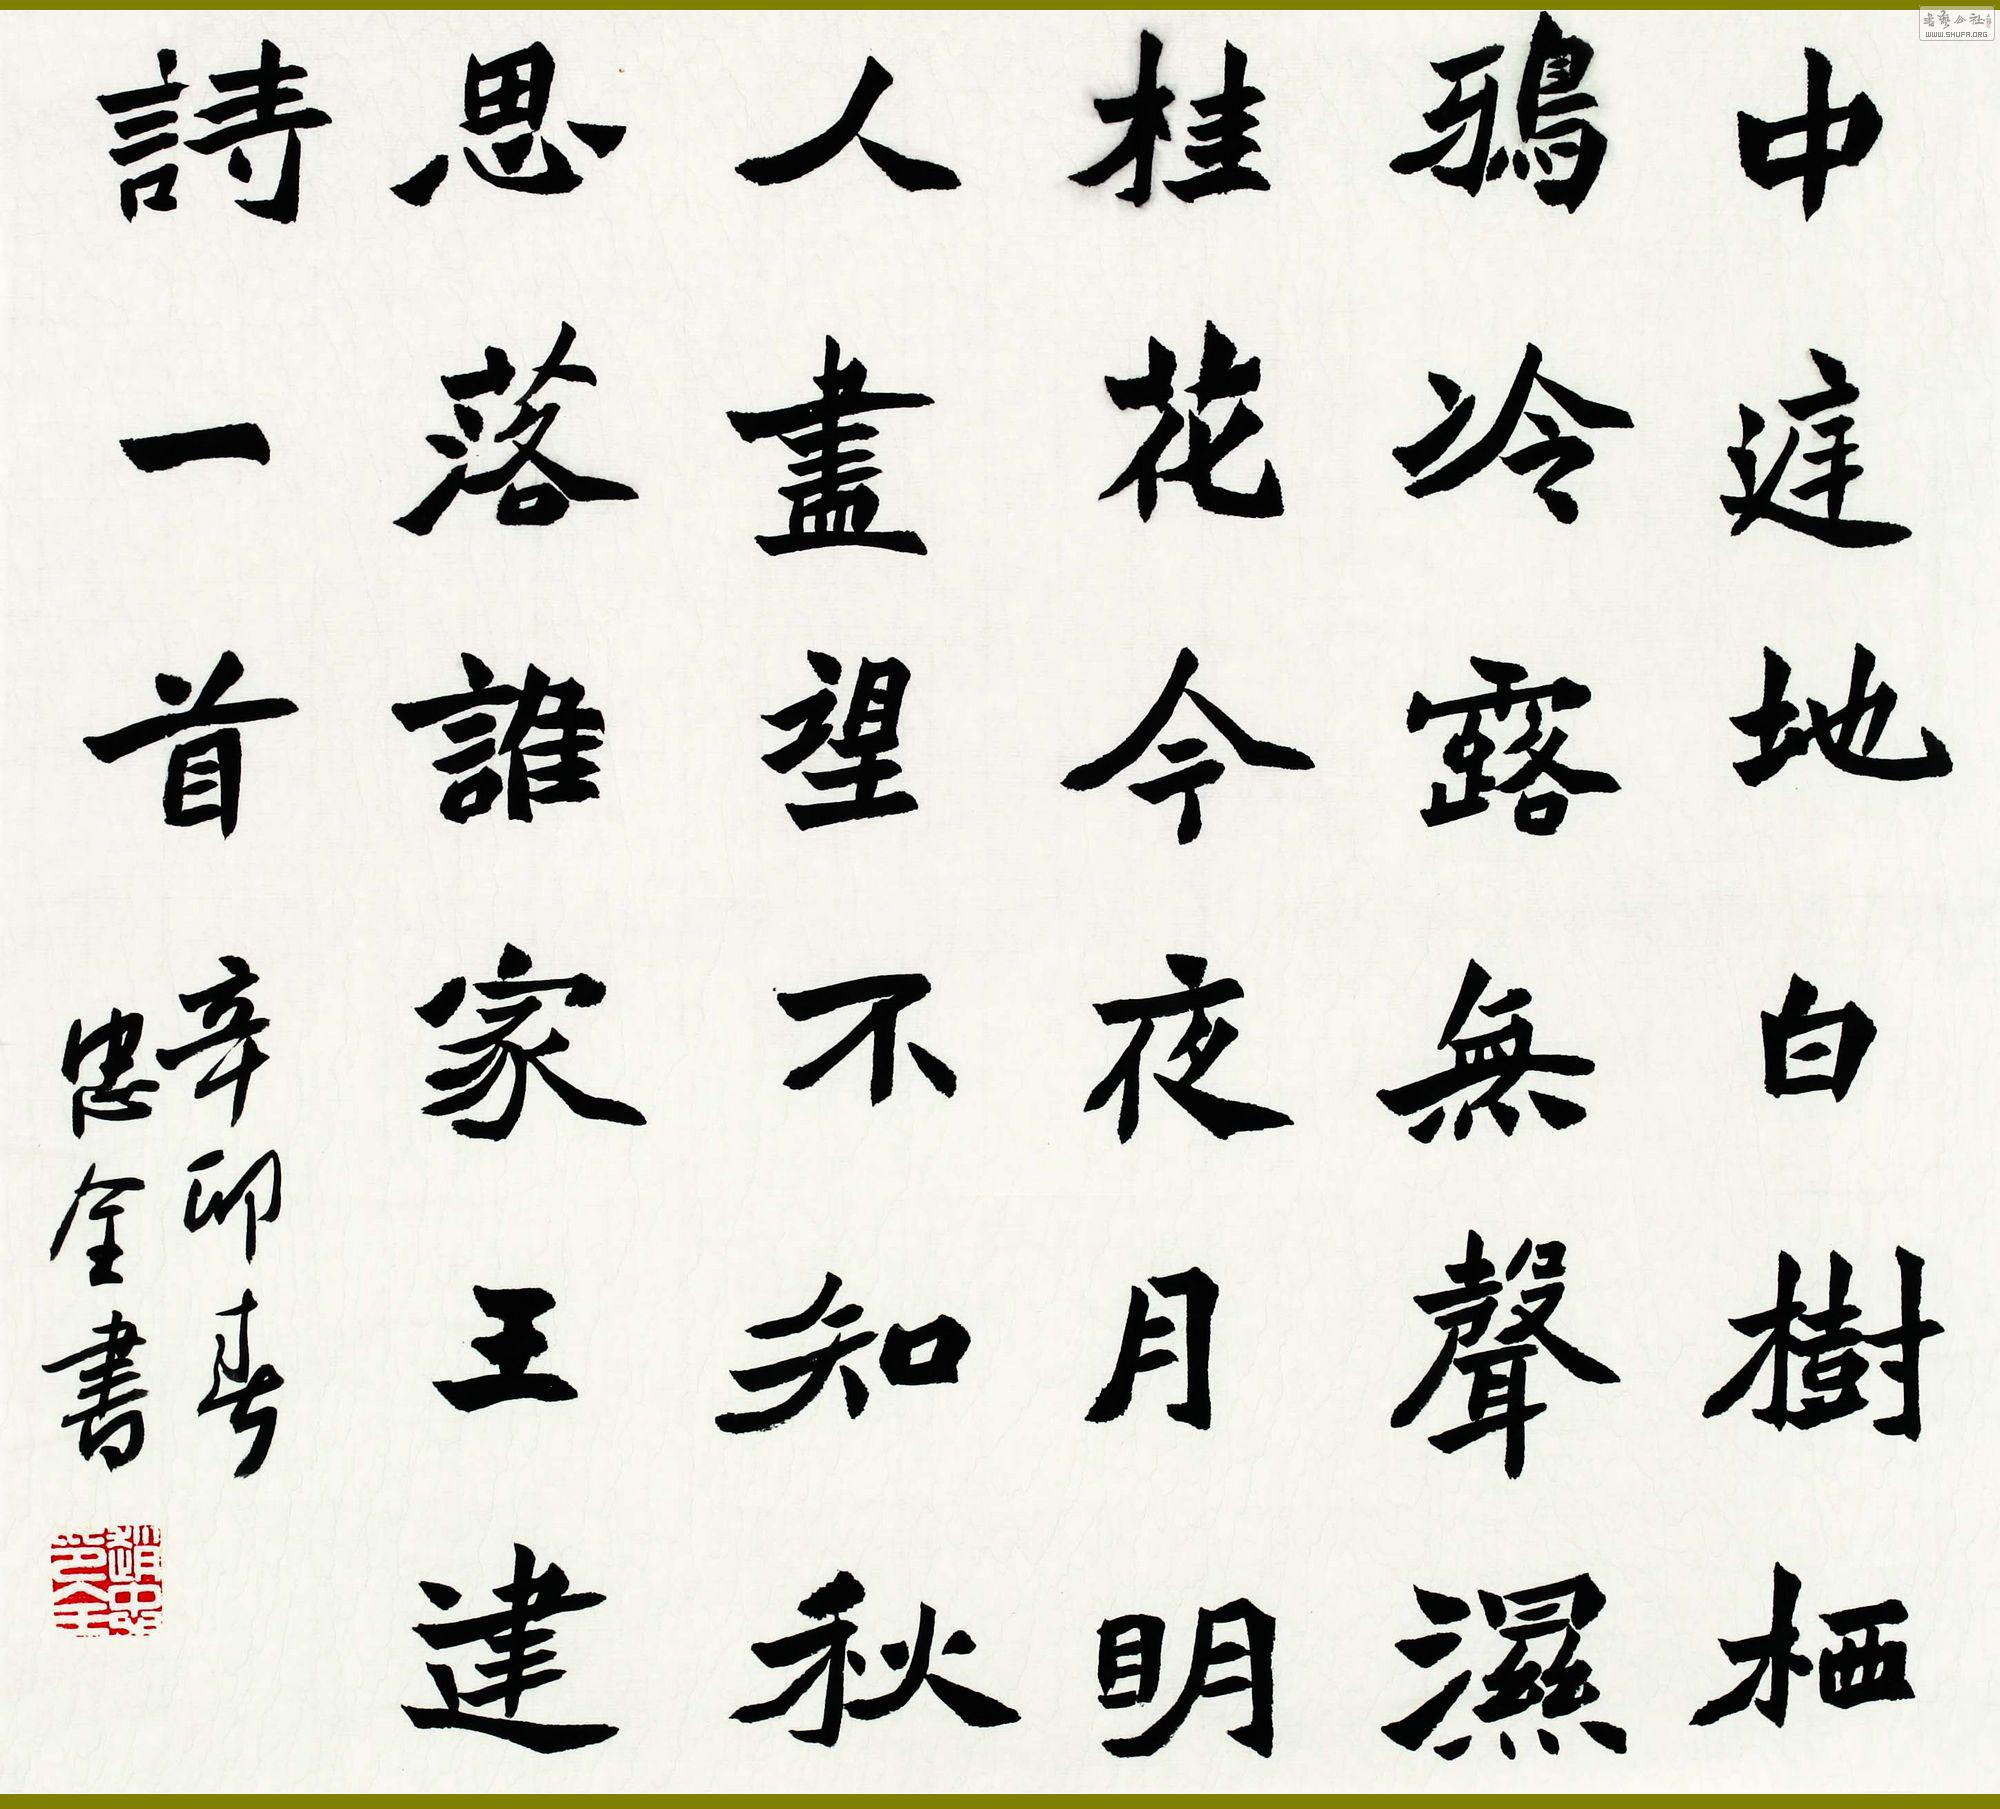 中庭地白樹栖
鴉冷露無聲濕
桂花今夜月明
人盡望不知秋
思落誰家王建
詩一首辛卯春
忠全書
書藝公社
WWW.SHUFA.ORG